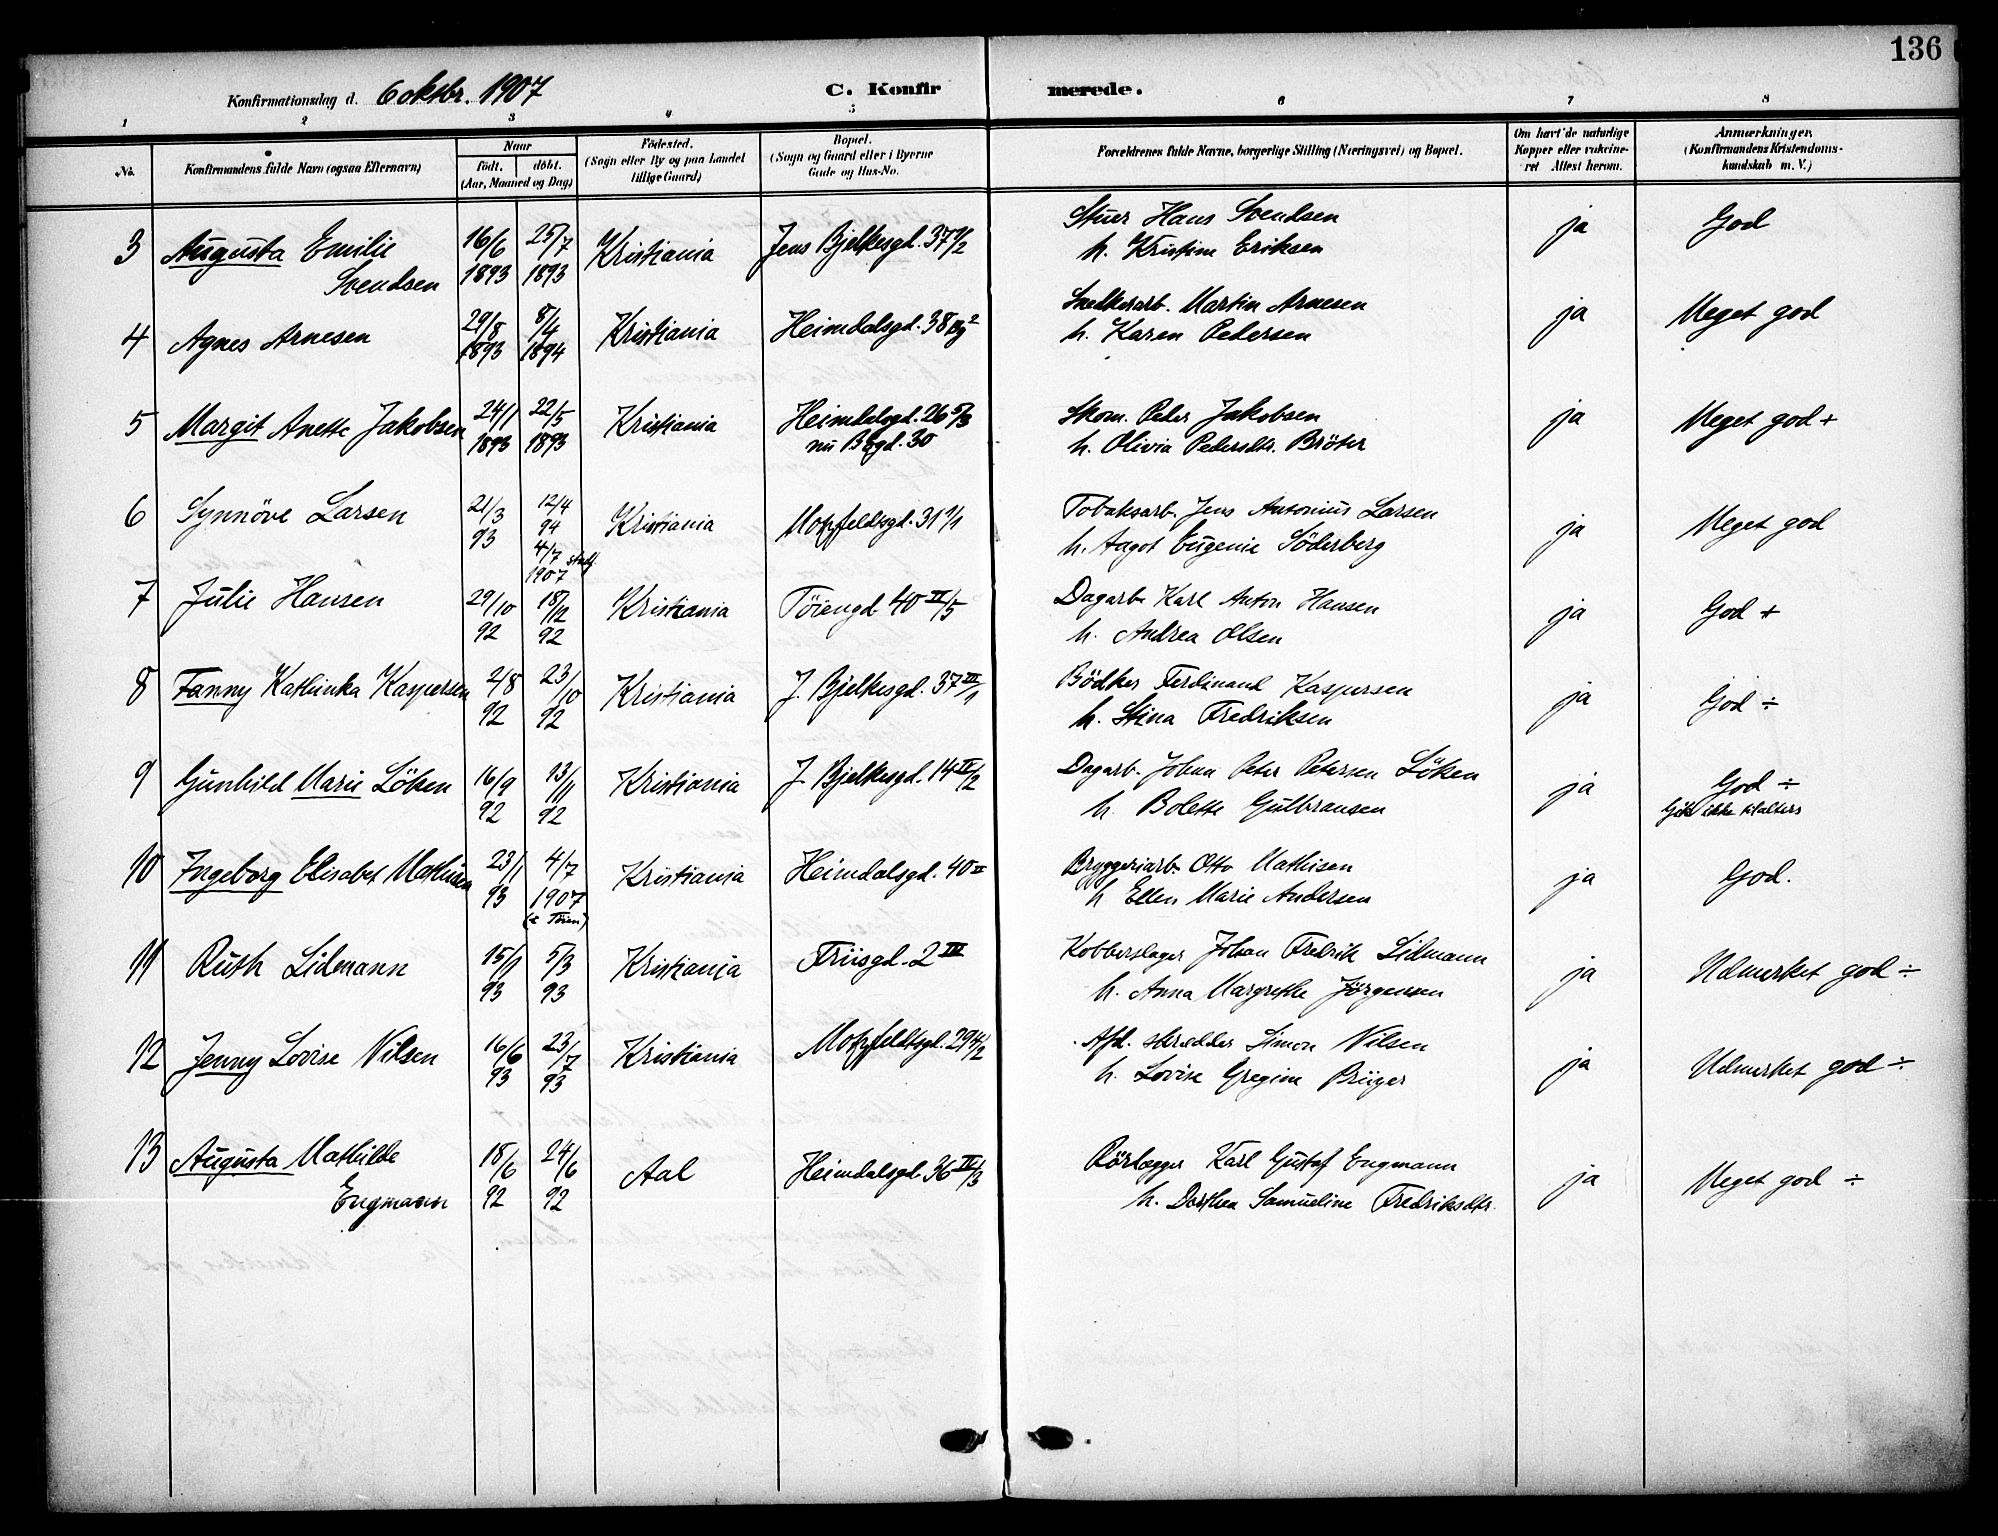 136
Konfirmationsdag d. 6 oktbr. 1907 C. Konfirmerede.
1 2 3 4 5 6 7 8
No. Konfirmandens fulde Navn (ogsaa Efternavn) Naar født. døbt. (Aar, Maaned og Dag) Fødested. (Sogn eller By og paa Landet tillige Gaard) Bopæl. (Sogn og Gaard eller i Byerne Gade og Hus-No. Forældrenes fulde Navne, borgerlige Stilling (Næringsvei) og Bopæl. Om havt de naturlige Kopper eller vakcineret Attest herom. Anmærkninger. (Konfirmandens Kristendomskundskab m. V.)
3 Augusta Emilie 16/6 25/7 Kristiania Jens Bjelkesgd. 37 Stuer Hans Svendsen ja God
Svendsen 1893 1893 h. Kristine Eriksen
4 Agnes Arnesen 29/8 8/4 Kristiania Heimdalsgd. 38 Snedkerarb. Martin Arnesen ja Meget god
1893 1894 h. Karen Pedersen
5 Margit Anette Jakobsen 24/1 22/5 Kristiania Heimdalsgd. 26 5/3 Skom. Peder Jakobsen ja Meget god +
1893 1893 nu Bogd. 30 h. Olivia Pedersdtr. Bröter
6 Synnöve Larsen 21/3 12/4 Kristiania Motzfeldtsgd. 31 Tobaksarb. Jens Antonius Larsen ja Meget god
93 94 h. Aagot Eugenie Söderberg
4/7 1907
7 Julie Hansen 29/10 18/12 Kristiania Töiengd 40 II/5 Dagarb. Karl Anton Hansen ja God +
92 92 h. Andrea Olsen
8 Fanny Kathinka Kaspersen 2/8 23/10 Kristiania J. Bjelkesgd. 37 III/1 Bödker Ferdinand Kaspersen ja God ÷
92 92 h. Stina Fredriksen
9 Gunhild Marie Löken 16/9 13/11 Kristiania J. Bjelkesgd. 14 IV/2 Dagarb. Johan Peter Petersen Löken ja God ÷
92 92 h. Bolette Gulbransen Gik ikke til alters
10 Ingeborg Elisabet Mathisen 23/1 4/7 Kristiania Heimdalsgd. 40 II Bryggeriarb. Otto Mathisen ja God.
93 1907 h Ellen Marie Andersen
11 Ruth Lidmann 15/1 5/3 Kristiania Friisgd. 2 III Kobberslager Johan Fredrik Lidmann ja Udmerket god ÷
93 93 h. Anna Margrethe Jörgensen
12 Jenny Lovise Nilsen 16/6 23/7 Kristiania Motzfeldtsgd. 29 4/2 Afd. skrædder Simon Nilsen ja Udmerket god ÷
93 93 h. Lovise Gregine Brüger
13 Augusta Mathilde 18/6 24/6 Aal Heimdalsgd. 36 IV/3 Rörlægger Karl Gustaf Engmann ja Meget god ÷
Engmann 92 92 h. Dorthea Samueline Fredriksdtr.